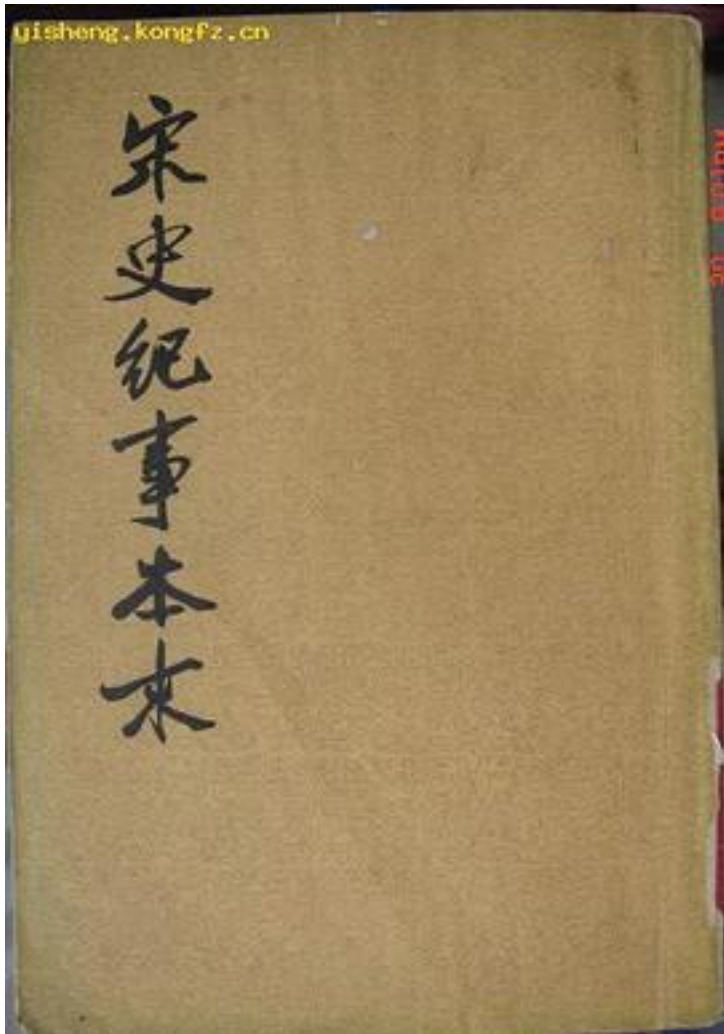 yisheng.kongfz.cn
宋史纪事本末